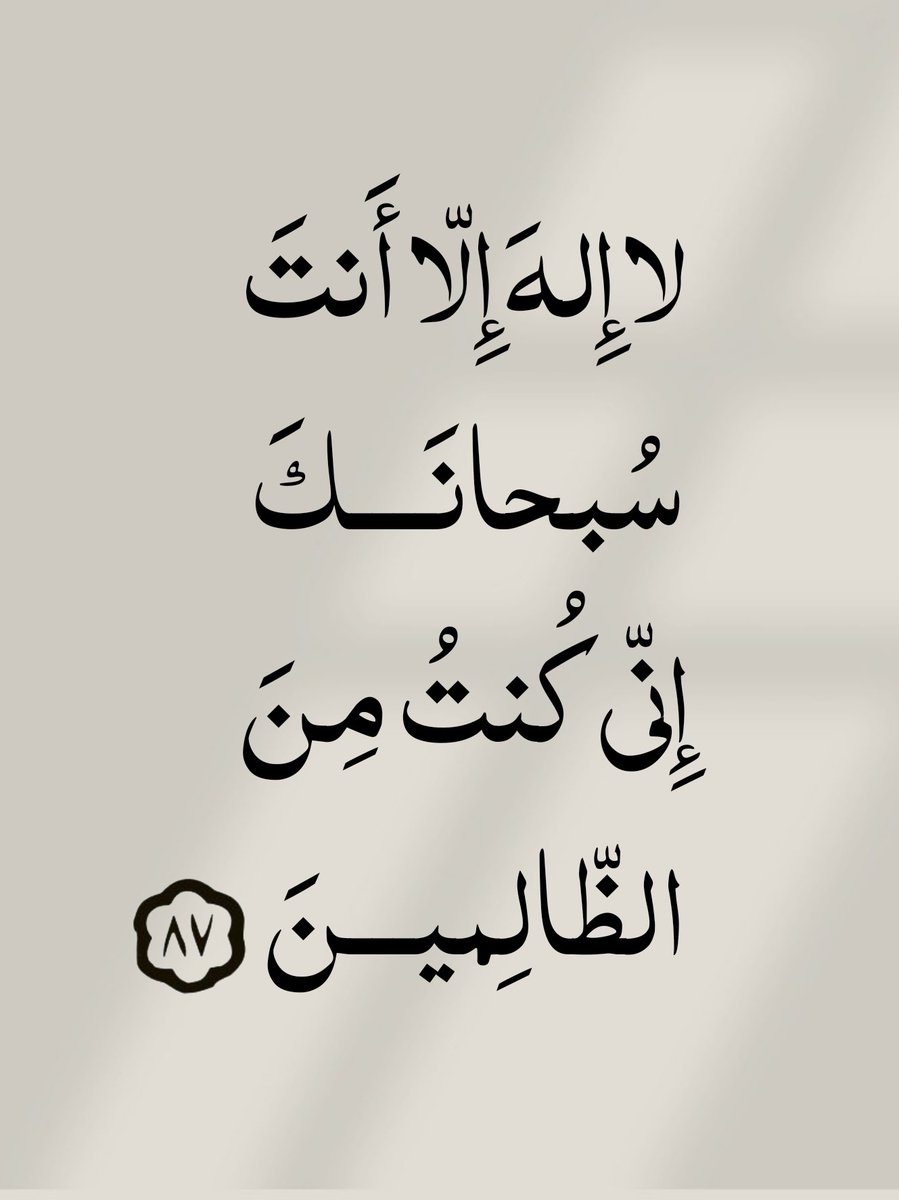 لا إِلهَ إِلّا أَنتَ
سُبحانَـــكَ
إِنّى كُنتُ مِنَ
الظّالِميـــنَ ٨٧